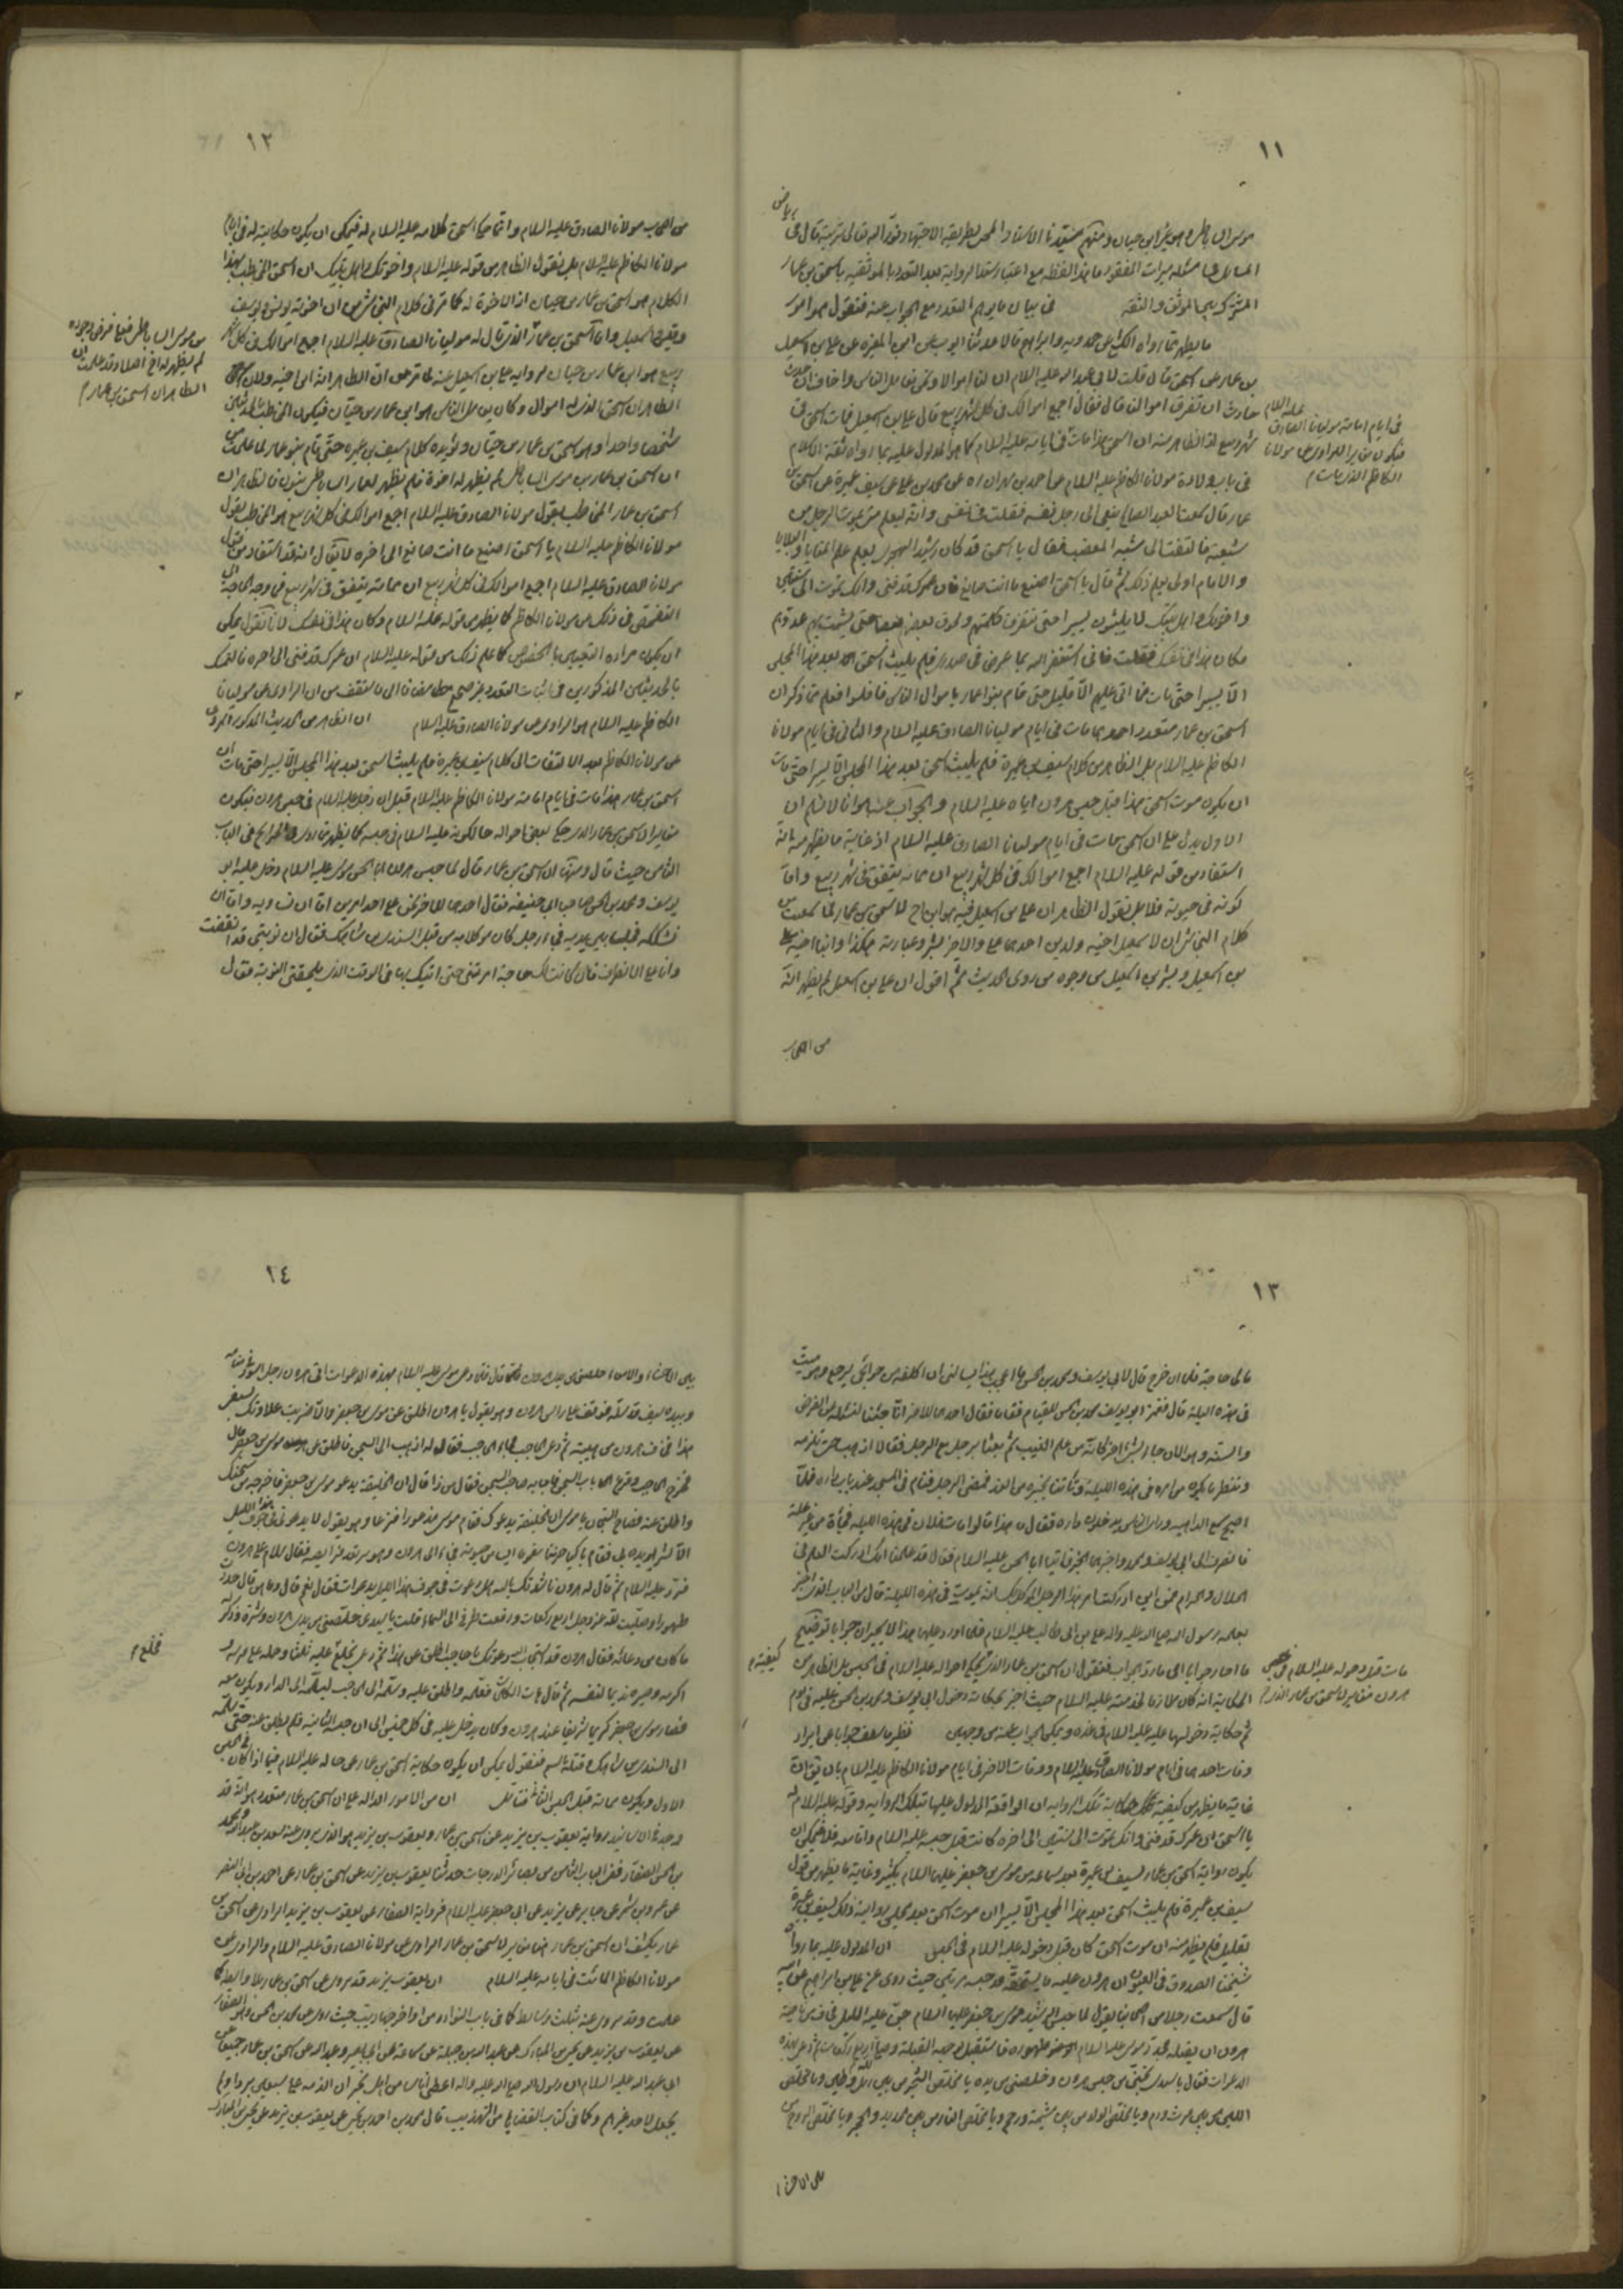 ١١
موسى الساباطي وهو غير ابن حيان ومنهم
المسائل مسئلة ميراث المفقود مع اعتبار سند الرواية بعد التعدد بالموثقية باسحق بن عمار
المشترك بين الموثق والثقة في بيان ما يوهم التعدد مع الجواب عنه فنقول هو امور
ما يظهر مما رواه الكشي عن حمدويه وابراهيم قالا حدثنا ايوب عن ابن المغيرة عن علي بن اسمعيل
بن عمار عن اسحق قال قلت لابي عبد الله عليه السلام ان لنا اموالا ونحن نعامل الناس واخاف ان حدث
حادث ان تفرق اموالنا قال فقال اجمع اموالك في كل شهر ربيع قال علي بن اسمعيل فمات اسحق في
شهر ربيع اذ الظاهر منه ان اسحق هذا مات في ايامه عليه السلام كما هو المدلول عليه بما رواه ثقة الاسلام
في باب ولادة مولانا الكاظم عليه السلام عن احمد بن مهران ره عن محمد بن علي عن سيف بن عميرة عن اسحق بن
عمار قال سمعت العبد الصالح ينعى الى رجل نفسه فقلت في نفسي وانه ليعلم متى يموت الرجل من
شيعته فالتفت الي شبه المغضب فقال يا اسحق قد كان رشيد الهجري يعلم علم المنايا والبلايا
والامام اولى بعلم ذلك ثم قال يا اسحق اصنع ما انت صانع فان عمرك قد فنى وانك تموت الى سنتين
واخوتك واهل بيتك لا يلبثون يسيرا حتى تتفرق كلمتهم ويخون بعضهم بعضا حتى يشمت بهم عدوهم
فكان هذا في نفسك فقلت فاني استغفر الله بما عرض في صدري فلم يلبث اسحق بعد هذا المجلس
الا يسيرا حتى مات فما اتى عليهم الا قليل حتى قام بنو عمار باموال الناس فافلسوا فعلم مما ذكر ان
اسحق بن عمار متعدد احدهما مات في ايام مولينا الصادق عليه السلام والثاني في ايام مولانا
الكاظم عليه السلام بل الظاهر من كلام سيف بن عميرة فلم يلبث اسحق بعد هذا المجلس الا يسيرا حتى مات
ان يكون موت اسحق هذا قبل حبس هرون اياه عليه السلام والجواب عنه اما الاول فلان
الاول يدل على ان اسحق مات في ايام مولينا الصادق عليه السلام اذ غاية ما يظهر منه انه
استفاد من قوله عليه السلام اجمع اموالك في كل شهر ربيع ان مماته يتفق في شهر ربيع واما
كونه في حيوته فلا بل نقول الظاهر ان علي بن اسمعيل فيه هو ابن اخ لاسحق بن عمار لما سمعت من
كلام النجاشي ان لاسمعيل اخيه ولدين احدهما علي والاخر بشر وعبارته هكذا وابنا اخيه علي
بن اسمعيل وبشر بن اسمعيل من وجوه من روى الحديث ثم اقول ان علي بن اسمعيل لم يظهر انه
من اصحاب
في ايام امامة مولينا الصادق عليه السلام
فيكون مغايرا للراوي عن مولانا
الكاظم الذي مات
١٢
من اصحاب مولانا الصادق عليه السلام وانما حكى اسحق كلامه عليه السلام له فيمكن ان يكون حكايته له في ايام
مولانا الكاظم عليه السلام بل نقول الظاهر من قوله عليه السلام واخوتك واهل بيتك ان اسحق المخاطب بهذا
الكلام هو اسحق بن عمار بن حيان اذ الاخوة له كما مر في كلام النجاشي من ان اخوته يونس ويوسف
وقيس واسمعيل واما اسحق بن عمار الذي قال له مولينا الصادق عليه السلام اجمع اموالك في كل شهر
ربيع هو ابن عمار بن حيان لرواية علي بن اسمعيل عنه لما مر من ان الظاهر انه ابن اخيه ولان
الظاهر ان اسحق الذي له اموال وكان يعامل الناس هو ابن عمار بن حيان فيكون المخاطب
شخصا واحدا وهو اسحق بن عمار بن حيان ويؤيده كلام سيف بن عميرة حتى قام بنو عمار لما علمت من
ان اسحق بن عمار بن موسى الساباطي لم يظهر له اخوة فلم يظهر لعمار الساباطي بنون فالظاهر ان
اسحق بن عمار المخاطب لقول مولانا الصادق عليه السلام اجمع اموالك في كل شهر ربيع هو المخاطب لقول
مولانا الكاظم عليه السلام يا اسحق اصنع ما انت صانع الى اخره لا يقال انه قد استفاد من قول
مولانا الصادق عليه السلام اجمع اموالك في كل شهر ربيع ان مماته يتفق في شهر ربيع فما وجه الحاجة الى
في ذلك من مولانا الكاظم كما يظهر من قوله عليه السلام وكان هذا في نفسك لانا نقول يمكن
ان يكون مراده التعيين بالخصوص كما علم ذلك من قوله عليه السلام ان عمرك قد فنى الى اخره فالتمسك
بالحديثين المذكورين في اثبات التعدد غير صحيح
الكاظم عليه السلام هو الراوي عن مولانا الصادق عليه السلام ان الظاهر من الحديث المذكور المروي
عن مولانا الكاظم بعد الالتفات الى كلام سيف بن عميرة فلم يلبث اسحق بعد هذا المجلس الا يسيرا حتى مات ان
اسحق بن عمار هذا مات في ايام امامة مولانا الكاظم عليه السلام قبل ان دخل عليه السلام في حبس هرون فيكون
مغايرا لاسحق بن عمار الذي حكى بعض احواله حالكونه عليه السلام في حبسه كما يظهر مما روى في الخرايج في الباب
الثامن حيث قال ومنها ان اسحق بن عمار قال لما حبس هرون ابا الحسن موسى عليه السلام دخل عليه ابو
يوسف ومحمد بن الحسن صاحبا ابي حنيفة فقال احدهما للاخر نحن على احد امرين اما ان نساويه واما ان
نشككه فجلسا بين يديه فجاء رجل كان موكلا به من قبل السندي بن شاهك فقال ان نوبتي قد انقضت
وانا على الانصراف فان كانت لك حاجة امرتني حتى اتيك بها في الوقت الذي يلحقني النوبة فقال
بن موسى الساباطي فيما فرض وجوده
لم يظهر له اخ اصلا وقد علمت ان
الظاهر ان اسحق بن عمار
١٣
مالي حاجة فلما ان خرج قال لابي يوسف ومحمد بن الحسن ما اعجب هذا يسالني ان اكلفه من حوائجي ليرجع وهو ميت
في هذه الليلة قال فغمز ابو يوسف محمد بن الحسن للقيام فقاما فقال احدهما للاخر انا جئنا لنسئله عن الفرض
والسنة وهو الان جاء بشيء اخر كانه من علم الغيب ثم بعثا برجل مع الرجل فقالا اذهب حتى تلزمه
وتنتظر ما يكون من امره في هذه الليلة وتاتينا بخبره من الغد فمضى الرجل فنام في المسجد عند باب داره فلما
اصبح سمع الواعية وراى الناس يدخلون داره فقال ما هذا قالوا مات فلان في هذه الليلة فجأة من غير علة
فانصرف الى ابي يوسف ومحمد واخبرهما الخبر فاتيا ابا الحسن عليه السلام فقالا قد علمنا انك ادركت العلم في
الحلال والحرام فمن اين ادركت امر هذا الرجل الموكل بك انه يموت في هذه الليلة قال من الباب الذي اخبر
بعلمه رسول الله صلى الله عليه واله علي بن ابي طالب عليه السلام فلما اورد عليهما هذا لا يحيران جوابا توضيح
ما احار جوابا اي ما رد الجواب فنقول ان اسحق بن عمار الذي يحكي احواله عليه السلام في الحبس بل الظاهر من
الحكاية انه كان ملازما لخدمته عليه السلام حيث اخبر بحكاية دخول ابي يوسف ومحمد بن الحسن عليه في يوم
ثم حكاية دخولهما عليه عليه السلام في غده ويمكن الجواب عنه من وجهين فظهر ما سلف جوابا عن ايراد
وفات احدهما في ايام مولانا الصادق عليه السلام ووفات الاخر في ايام مولانا الكاظم عليه السلام بان يقال ان
غاية ما يظهر من كيفية حكاية تلك الرواية ان الواقعة المدلول عليها بتلك الرواية وقوله عليه السلام له
يا اسحق ان عمرك قد فنى وانك تموت الى سنتين الى اخره كانت قبل حبسه عليه السلام واما بعده فلا فيمكن ان
يكون رواية اسحق بن عمار لسيف بن عميرة بعد سماعه من موسى بن جعفر عليهما السلام بكثير وغاية ما يظهر من قول
سيف بن عميرة فلم يلبث اسحق بعد هذا المجلس الا يسيرا ان موت اسحق بعد مجلس روايته ذلك لسيف بن عميرة
بقليل فلم يظهر منه ان موت اسحق كان قبل دخوله عليه السلام في الحبس ان المدلول عليه بما رواه
شيخنا الصدوق في العيون ان هرون عليه ما يستحقه قد حبسه مرتين حيث روى عن علي بن ابراهيم عن ابيه
قال سمعت رجلا من اصحابنا يقول لما حبس الرشيد موسى بن جعفر عليهما السلام جن عليه الليل فخاف من ناحية
هرون ان يقتله فجدد موسى عليه السلام طهوره فاستقبل بوجهه القبلة وصلى اربع ركعات ثم دعى بهذه
الدعوات فقال يا سيدي نجني من حبس هرون وخلصني من يده يا مخلص الشجر من بين رمل وطين ويا مخلص
اللبن من بين فرث ودم ويا مخلص الولد من بين مشيمة ورحم ويا مخلص النار من بين الحديد والحجر ويا مخلص الروح من
بين الاحشاء
مات قبل دخوله عليه السلام في حبس
هرون مغاير لاسحق بن عمار الذي
كيفية
١٤
بين الاحشاء والامعاء خلصني من يد هرون قال فلما دعى موسى عليه السلام بهذه الدعوات اتى هرون رجل اسود في منامه
وبيده سيف قد سله فوقف على راس هرون وهو يقول يا هرون اطلق عن موسى بن جعفر والا ضربت علاوتك بسيفي
هذا فخاف هرون من هيبته ثم دعى الحاجب فجاء الحاجب فقال له اذهب الى السجن فاطلق عن موسى بن جعفر قال
فخرج الحاجب وقرع باب السجن فاجابه صاحب السجن فقال من ذا قال ان الخليفة يدعو موسى بن جعفر فاخرجه من سجنك
واطلق عنه فصاح السجان يا موسى ان الخليفة يدعوك فقام موسى مذعورا فزعا وهو يقول لا يدعوني في جوف هذا الليل
الا لشر يريده بي فقام باكيا حزينا مغموما ايسا من حيوته فجاء الى هرون وهو يرتعد فرايصه فقال سلام على هرون
فرد عليه السلام ثم قال له هرون ناشدتك بالله هل دعوت في جوف هذا الليل بدعوات فقال نعم قال وما هن قال جددت
طهورا وصليت لله عز وجل اربع ركعات ورفعت طرفي الى السماء وقلت يا سيدي خلصني من يد هرون وشره وذكر له
ما كان من دعائه فقال هرون قد استجاب الله دعوتك يا حاجب اطلق عن هذا ثم دعى بخلع عليه ثلثا وحمله على فرسه و
اكرمه وصيره نديما لنفسه ثم قال هات الكلمات فعلمه واطلق عنه وسلمه الى الحاجب ليسلمه الى الدار ويكون معه
فصار موسى بن جعفر كريما شريفا عند هرون وكان يدخل عليه في كل خميس الى ان حبسه الثانية فلم يطلق عنه حتى سلمه
الى السندي بن شاهك وقتله بالسم فنقول يمكن ان يكون حكاية اسحق بن عمار عن حاله عليه السلام فيما اذا كان في الحبس
الاول ويكون مماته قبل الحبس الثاني فتامل ان من الامور الدالة على ان اسحق بن عمار متعدد هو انه قد
وجد في الاسانيد رواية يعقوب بن يزيد عن اسحق بن عمار ويعقوب بن يزيد هو الذي يروي عنه سعد بن عبد الله ومحمد
بن الحسن الصفار ففي الباب الثامن من بصائر الدرجات حدثنا يعقوب بن يزيد عن اسحق بن عمار عن احمد بن النضر
عن عمرو بن شمر عن جابر عن يزيد عن ابي جعفر عليه السلام فرواية الصفار عن يعقوب بن يزيد الراوي عن اسحق بن
عمار يكشف ان اسحق بن عمار هذا مغاير لاسحق بن عمار الراوي عن مولانا الصادق عليه السلام والراوي عن
مولانا الكاظم المائت في ايامه عليه السلام ان يعقوب بن يزيد قد يروي عن اسحق بن عمار بلا واسطة كما
علمت وقد يروي عنه بثلث وسايط كما في باب النوادر من اواخر جهاد يب حيث روى عن محمد بن الحسن الصفار
عن يعقوب بن يزيد عن يحيى بن المبارك عن عبد الله بن جبلة عن سماعة عن ابي بصير وعبد الله عن اسحق بن عمار جميعا عن
ابي عبد الله عليه السلام ان رسول الله صلى الله عليه واله اعطى اناسا من اهل نجران الذمة على سبعين بردا ولم
يجعل لاحد غيرهم وكما في كتاب القضايا من التهذيب قال محمد بن احمد بن يحيى عن يعقوب بن يزيد عن يحيى بن المبارك
فخلع